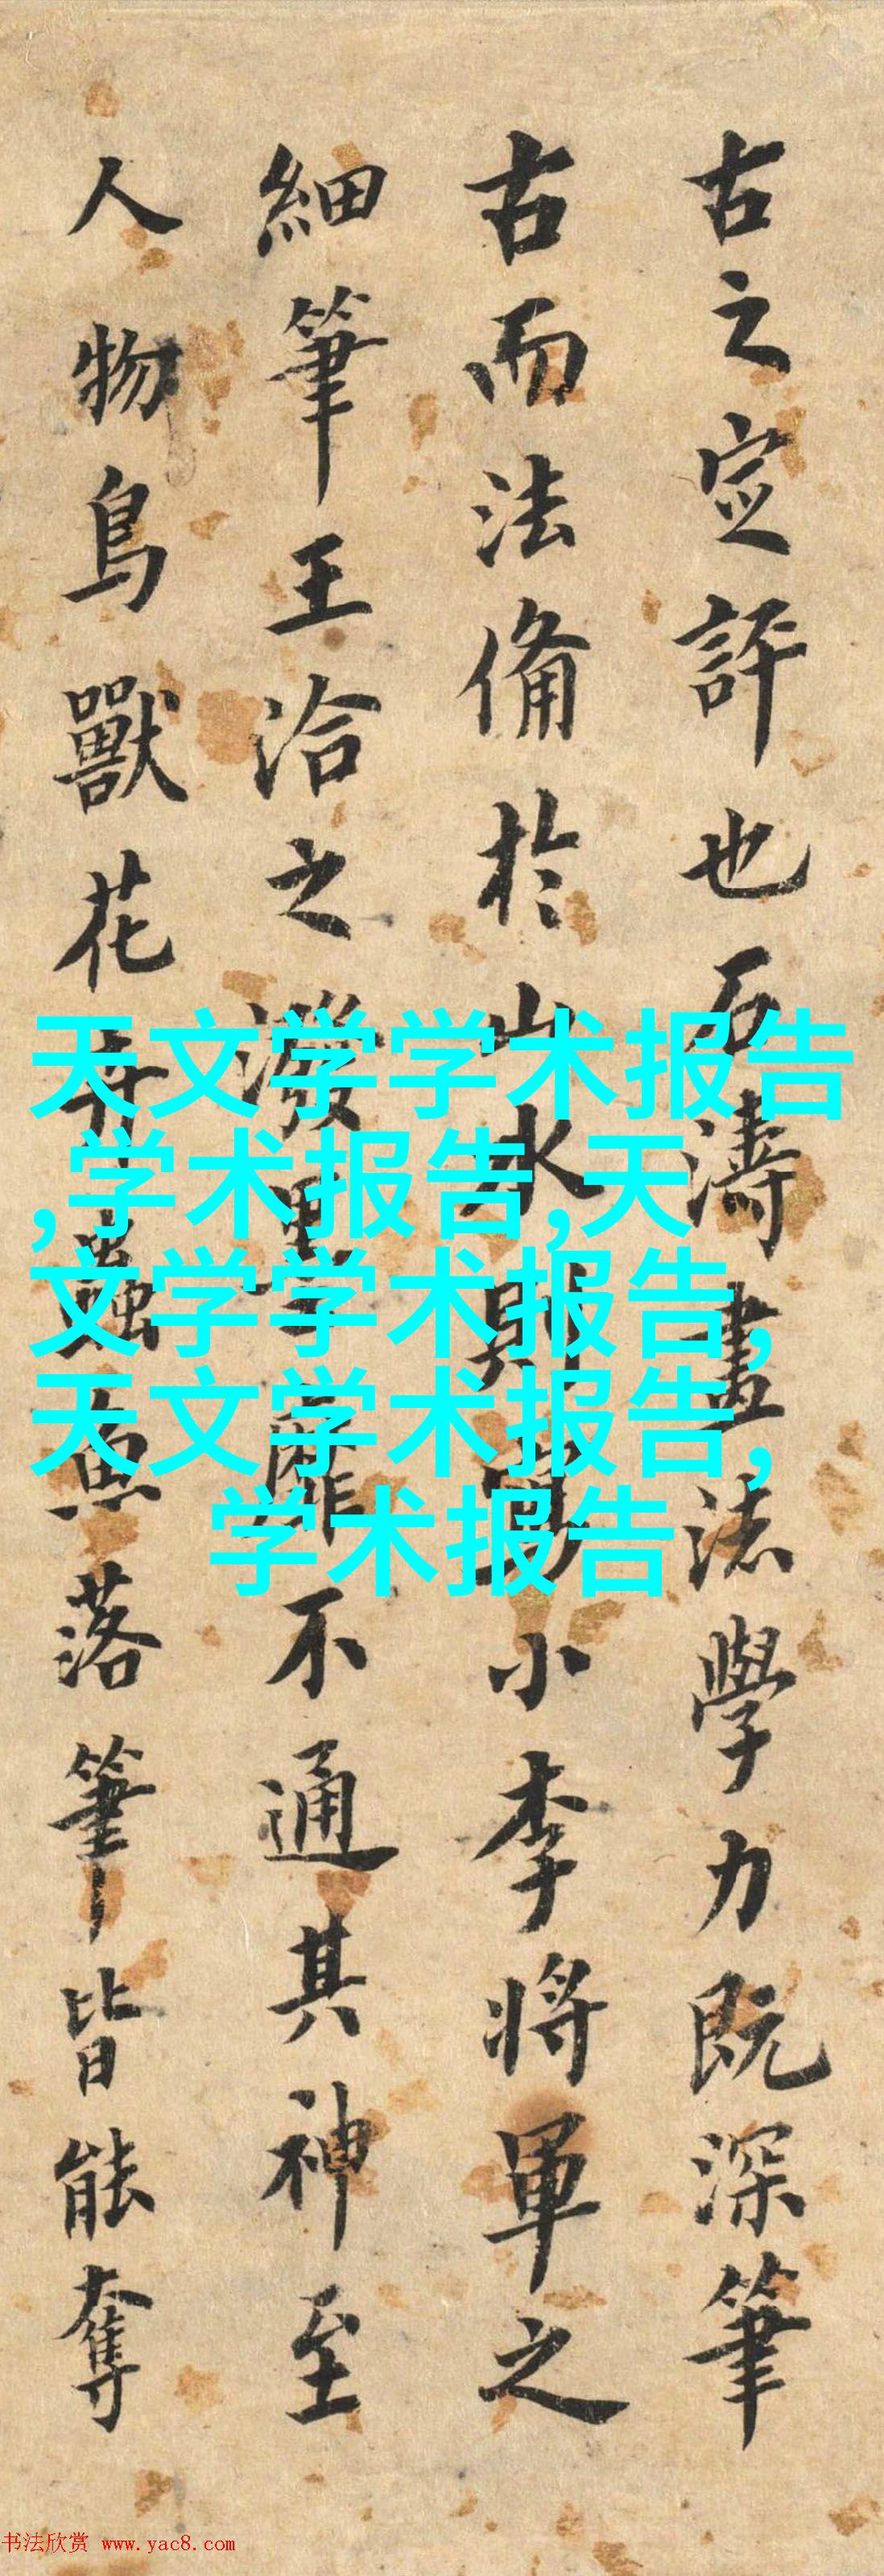 古之定評也石濤畫法學力既深筆
古而法備於山水則寫小李將軍之
細筆王洽之潑墨靡不通其神至
人物鳥獸花卉蟲魚落筆皆能奪
天文学学术报告
,学术报告,天
文学学术报告,
天文学术报告,
学术报告
书法欣赏 www.yac8.com